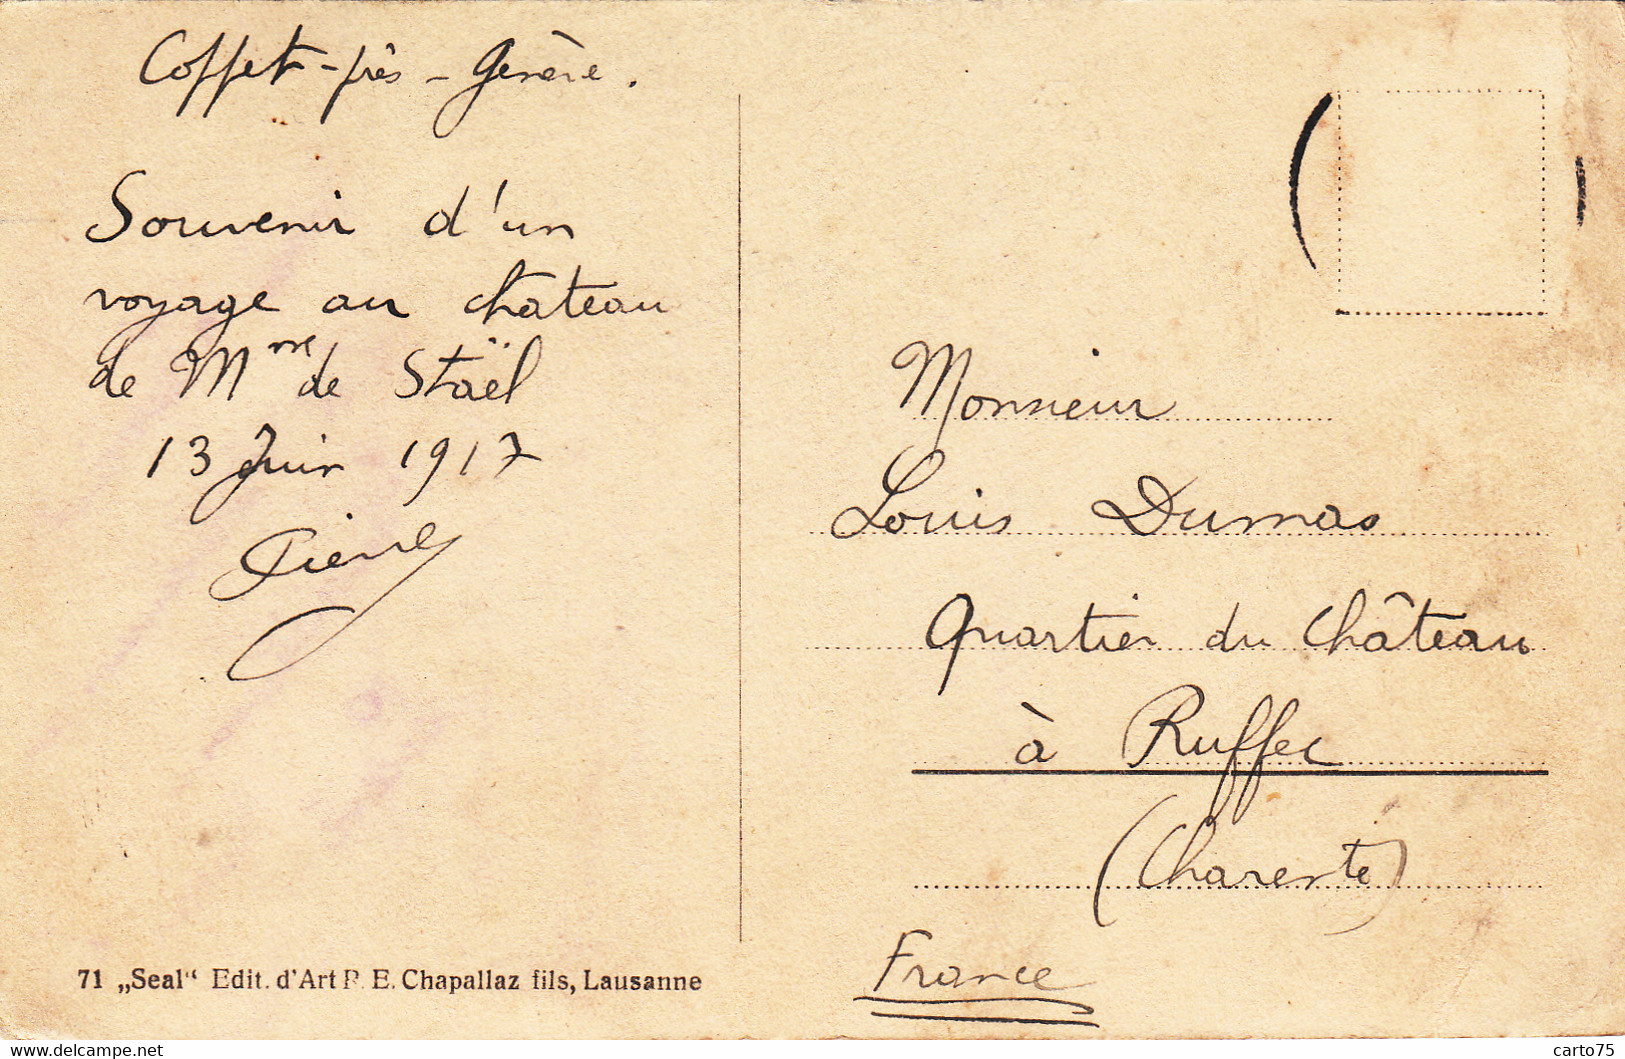 Coppet-près-Genève.
Souvenir d'un
voyage au chateau
de Mme de Staël
13 Juin 1917
Pierre
Monsieur
Louis Dumas
Quartier du Château
à Ruffec
(Charente)
France
71 „Seal“ Edit. d'Art R. E. Chapallaz fils, Lausanne
www.delcampe.net
carto75